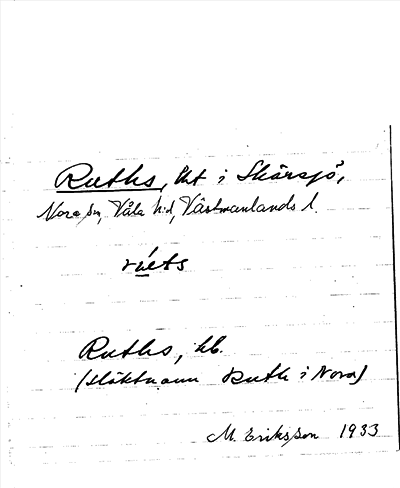 Ruths, tht i Skärsjö,
Nora sn, Våla hd, Västmanlands l.
rúets
Ruths, hb.
(släktnamn Ruth i Nora)
M. Eriksson 1933